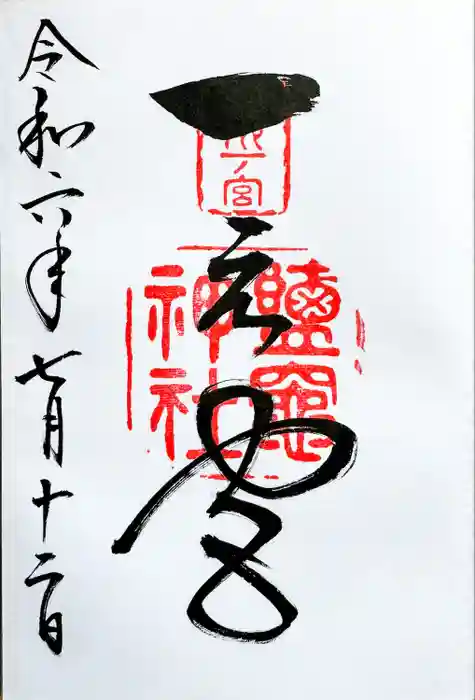 一之宮
一ノ宮
鹽竈
神社
令和六年七月十二日